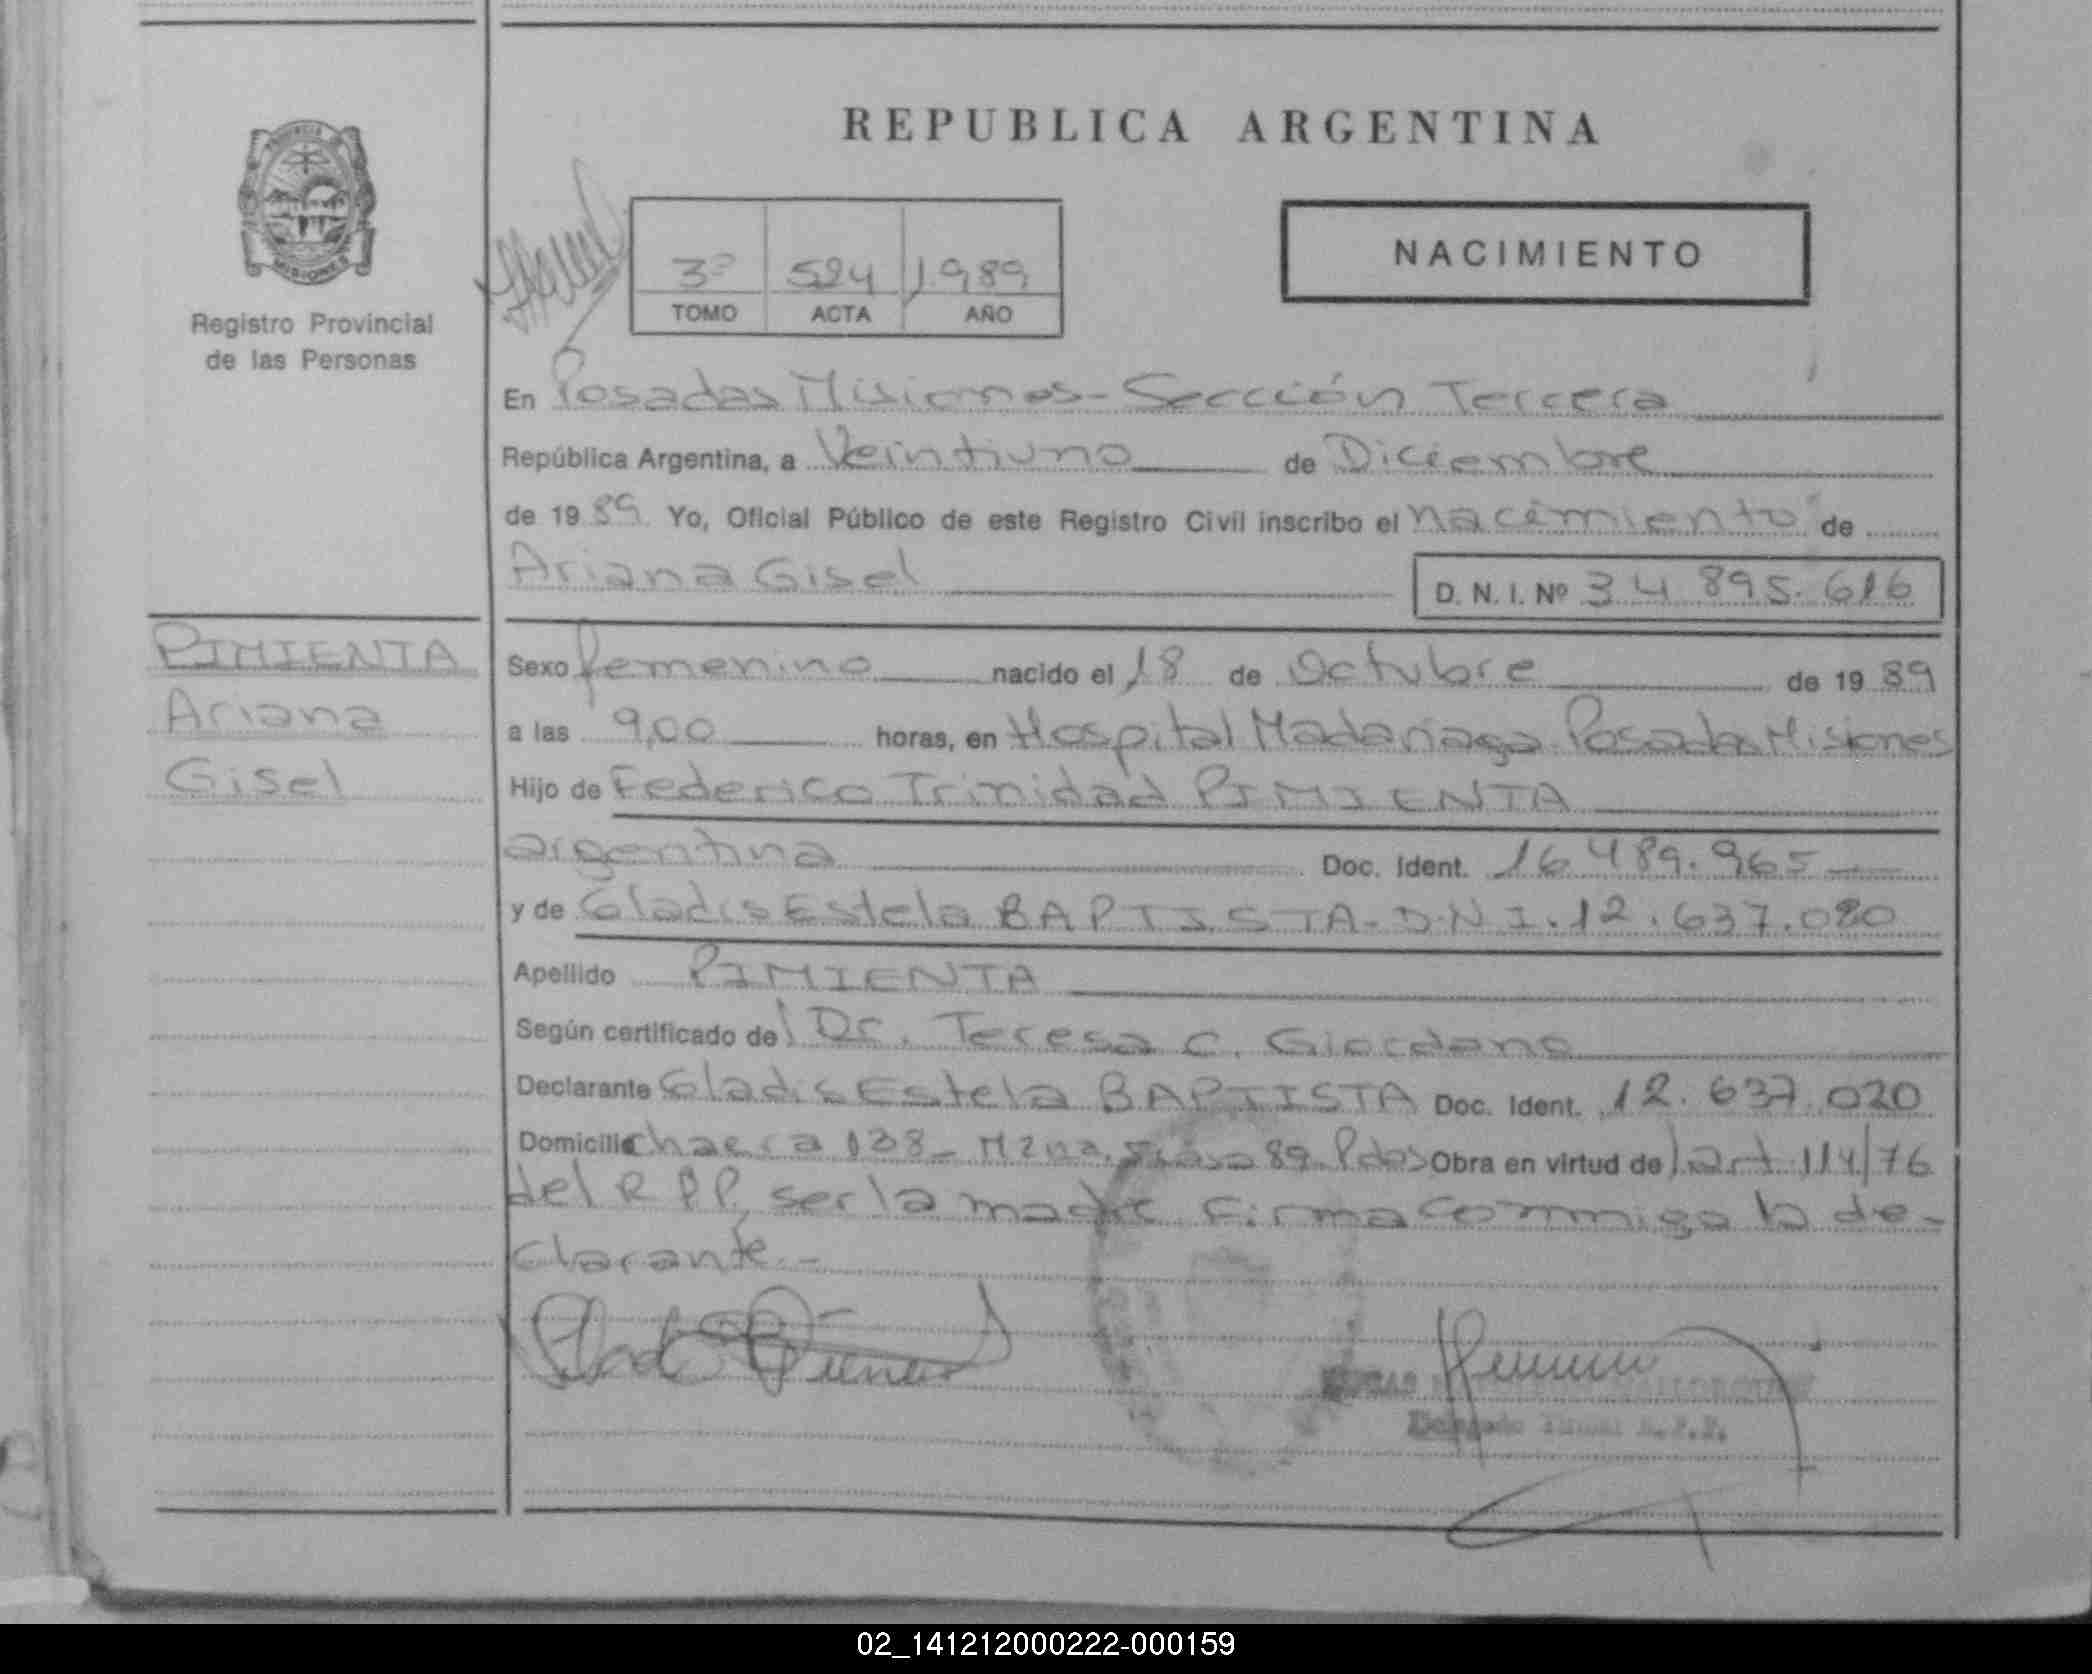 REPUBLICA ARGENTINA
NACIMIENTO
3º 524 1.989
TOMO ACTA AÑO
PROVINCIA
MISIONES
Registro Provincial
de las Personas
En Posadas Misiones - Sección Tercera
República Argentina, a Veintiuno de Diciembre
de 1989. Yo, Oficial Público de este Registro Civil inscribo el nacimiento de
Ariana Gisel D. N. I. Nº 34 895.616
PIMIENTA
Ariana
Gisel
Sexo femenino nacido el 18 de Octubre de 1989
a las 9,00 horas, en Hospital Madariaga Posadas Misiones
Hijo de Federico Trinidad PIMIENTA
argentina Doc. Ident. 16.489.965
y de Gladis Estela BAPTISTA - D.N.I. 12.637.020
Apellido PIMIENTA
Según certificado del Dr. Teresa C. Giordano
Declarante Gladis Estela BAPTISTA Doc. Ident. 12.637.020
Domicilio chacra 138 - Mzna. casa 89. Pdas Obra en virtud del art 114/76
del R P P, ser la madre Firma conmigo la de-
clarante. -
Delgado R.P.P.
02_141212000222-000159